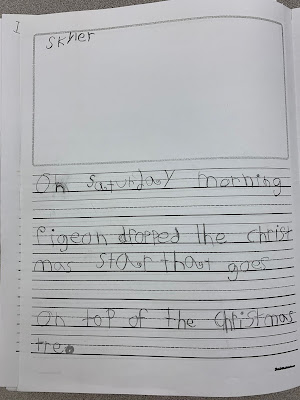 On saturday morning
Pigeon dropped the christ
mas star that goes
On top of the christmas
tree